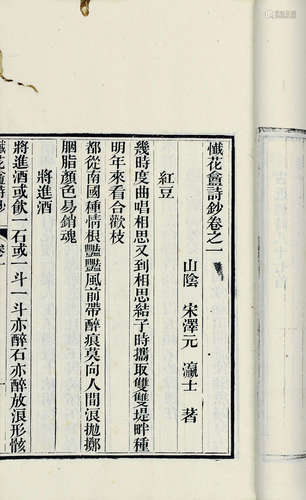 懺花盦詩鈔卷之一
山陰 宋澤元 瀛士 著
紅豆
幾時度曲唱相思又到相思結子時攜取雙雙堤畔種
明年來看合歡枝
都從南國種情根豔豔風前帶醉痕莫向人間浪拋擲
胭脂顏色易銷魂
將進酒
將進酒或飲一石或一斗一斗亦醉石亦醉放浪形骸
懺花盦詩鈔 卷一